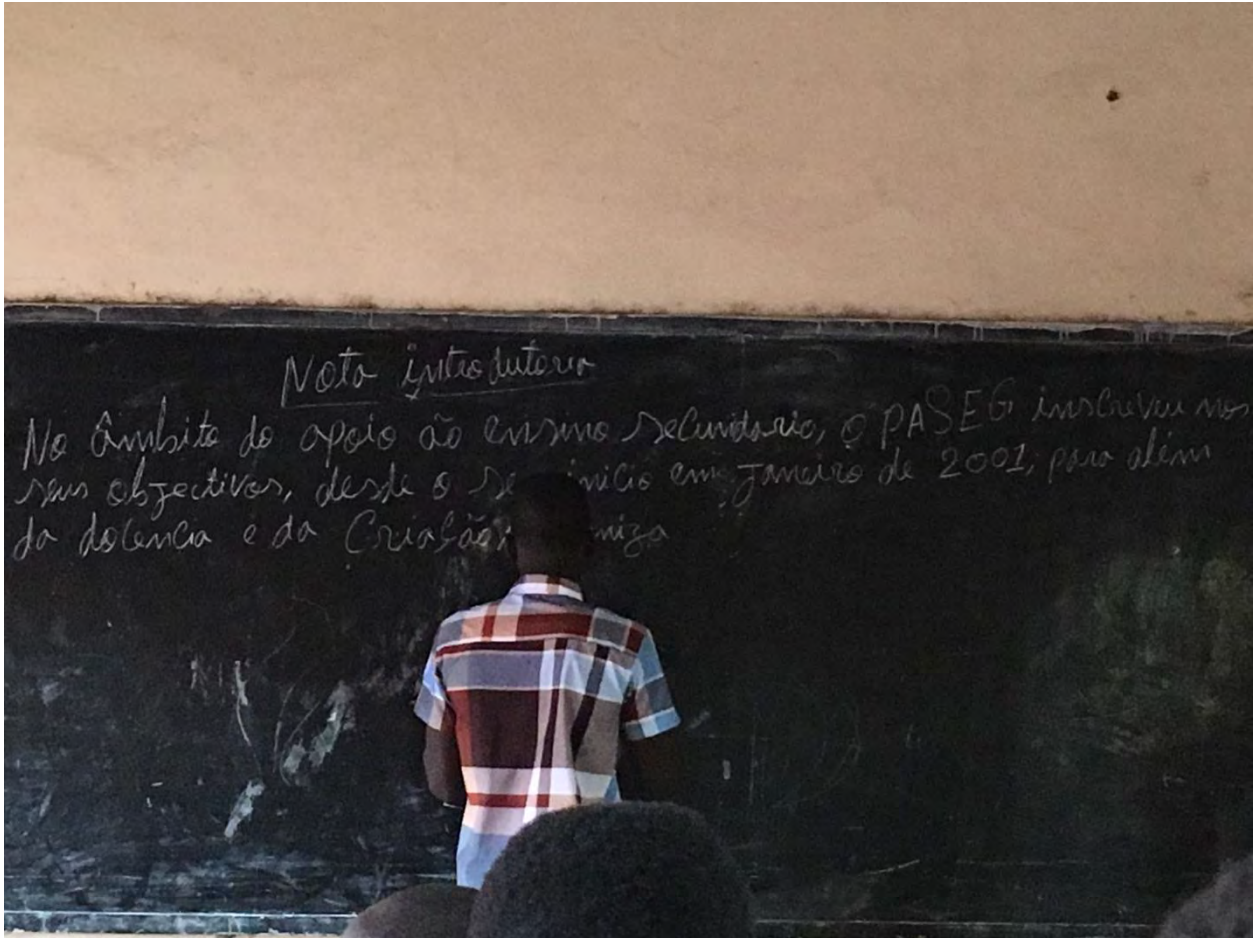 Nota introdutoria
No âmbito do apoio ão ensino secundario, o PASEG inscreveu nos
seus objectivos, desde o em Janeiro de 2001, para além
da docencia e da Criação,